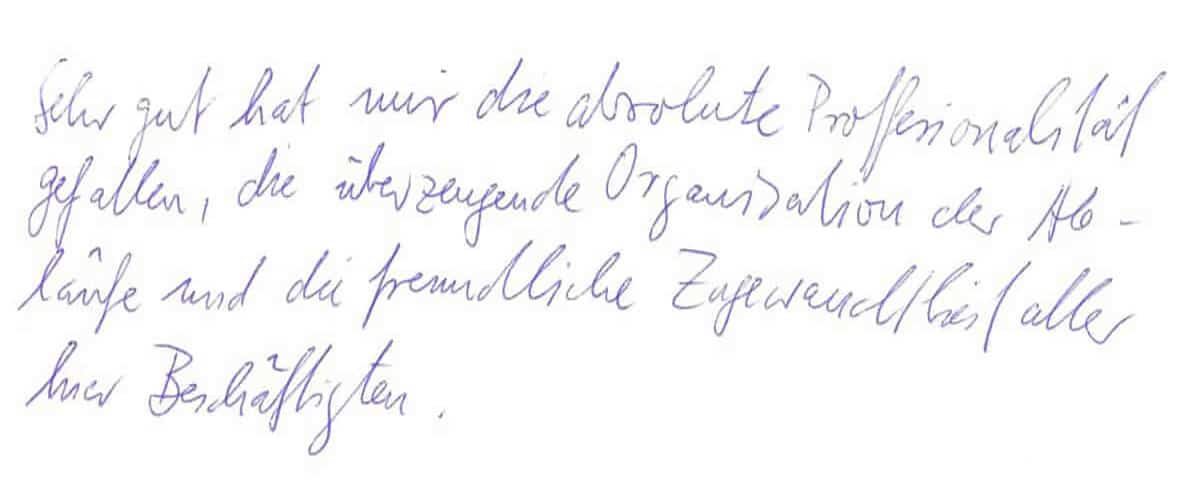 Sehr gut hat mir die absolute Proffesionalität
gefallen, die überzeugende Organisation der Ab-
läufe und die freundliche Zugewandtheit aller
hier Beschäftigten.